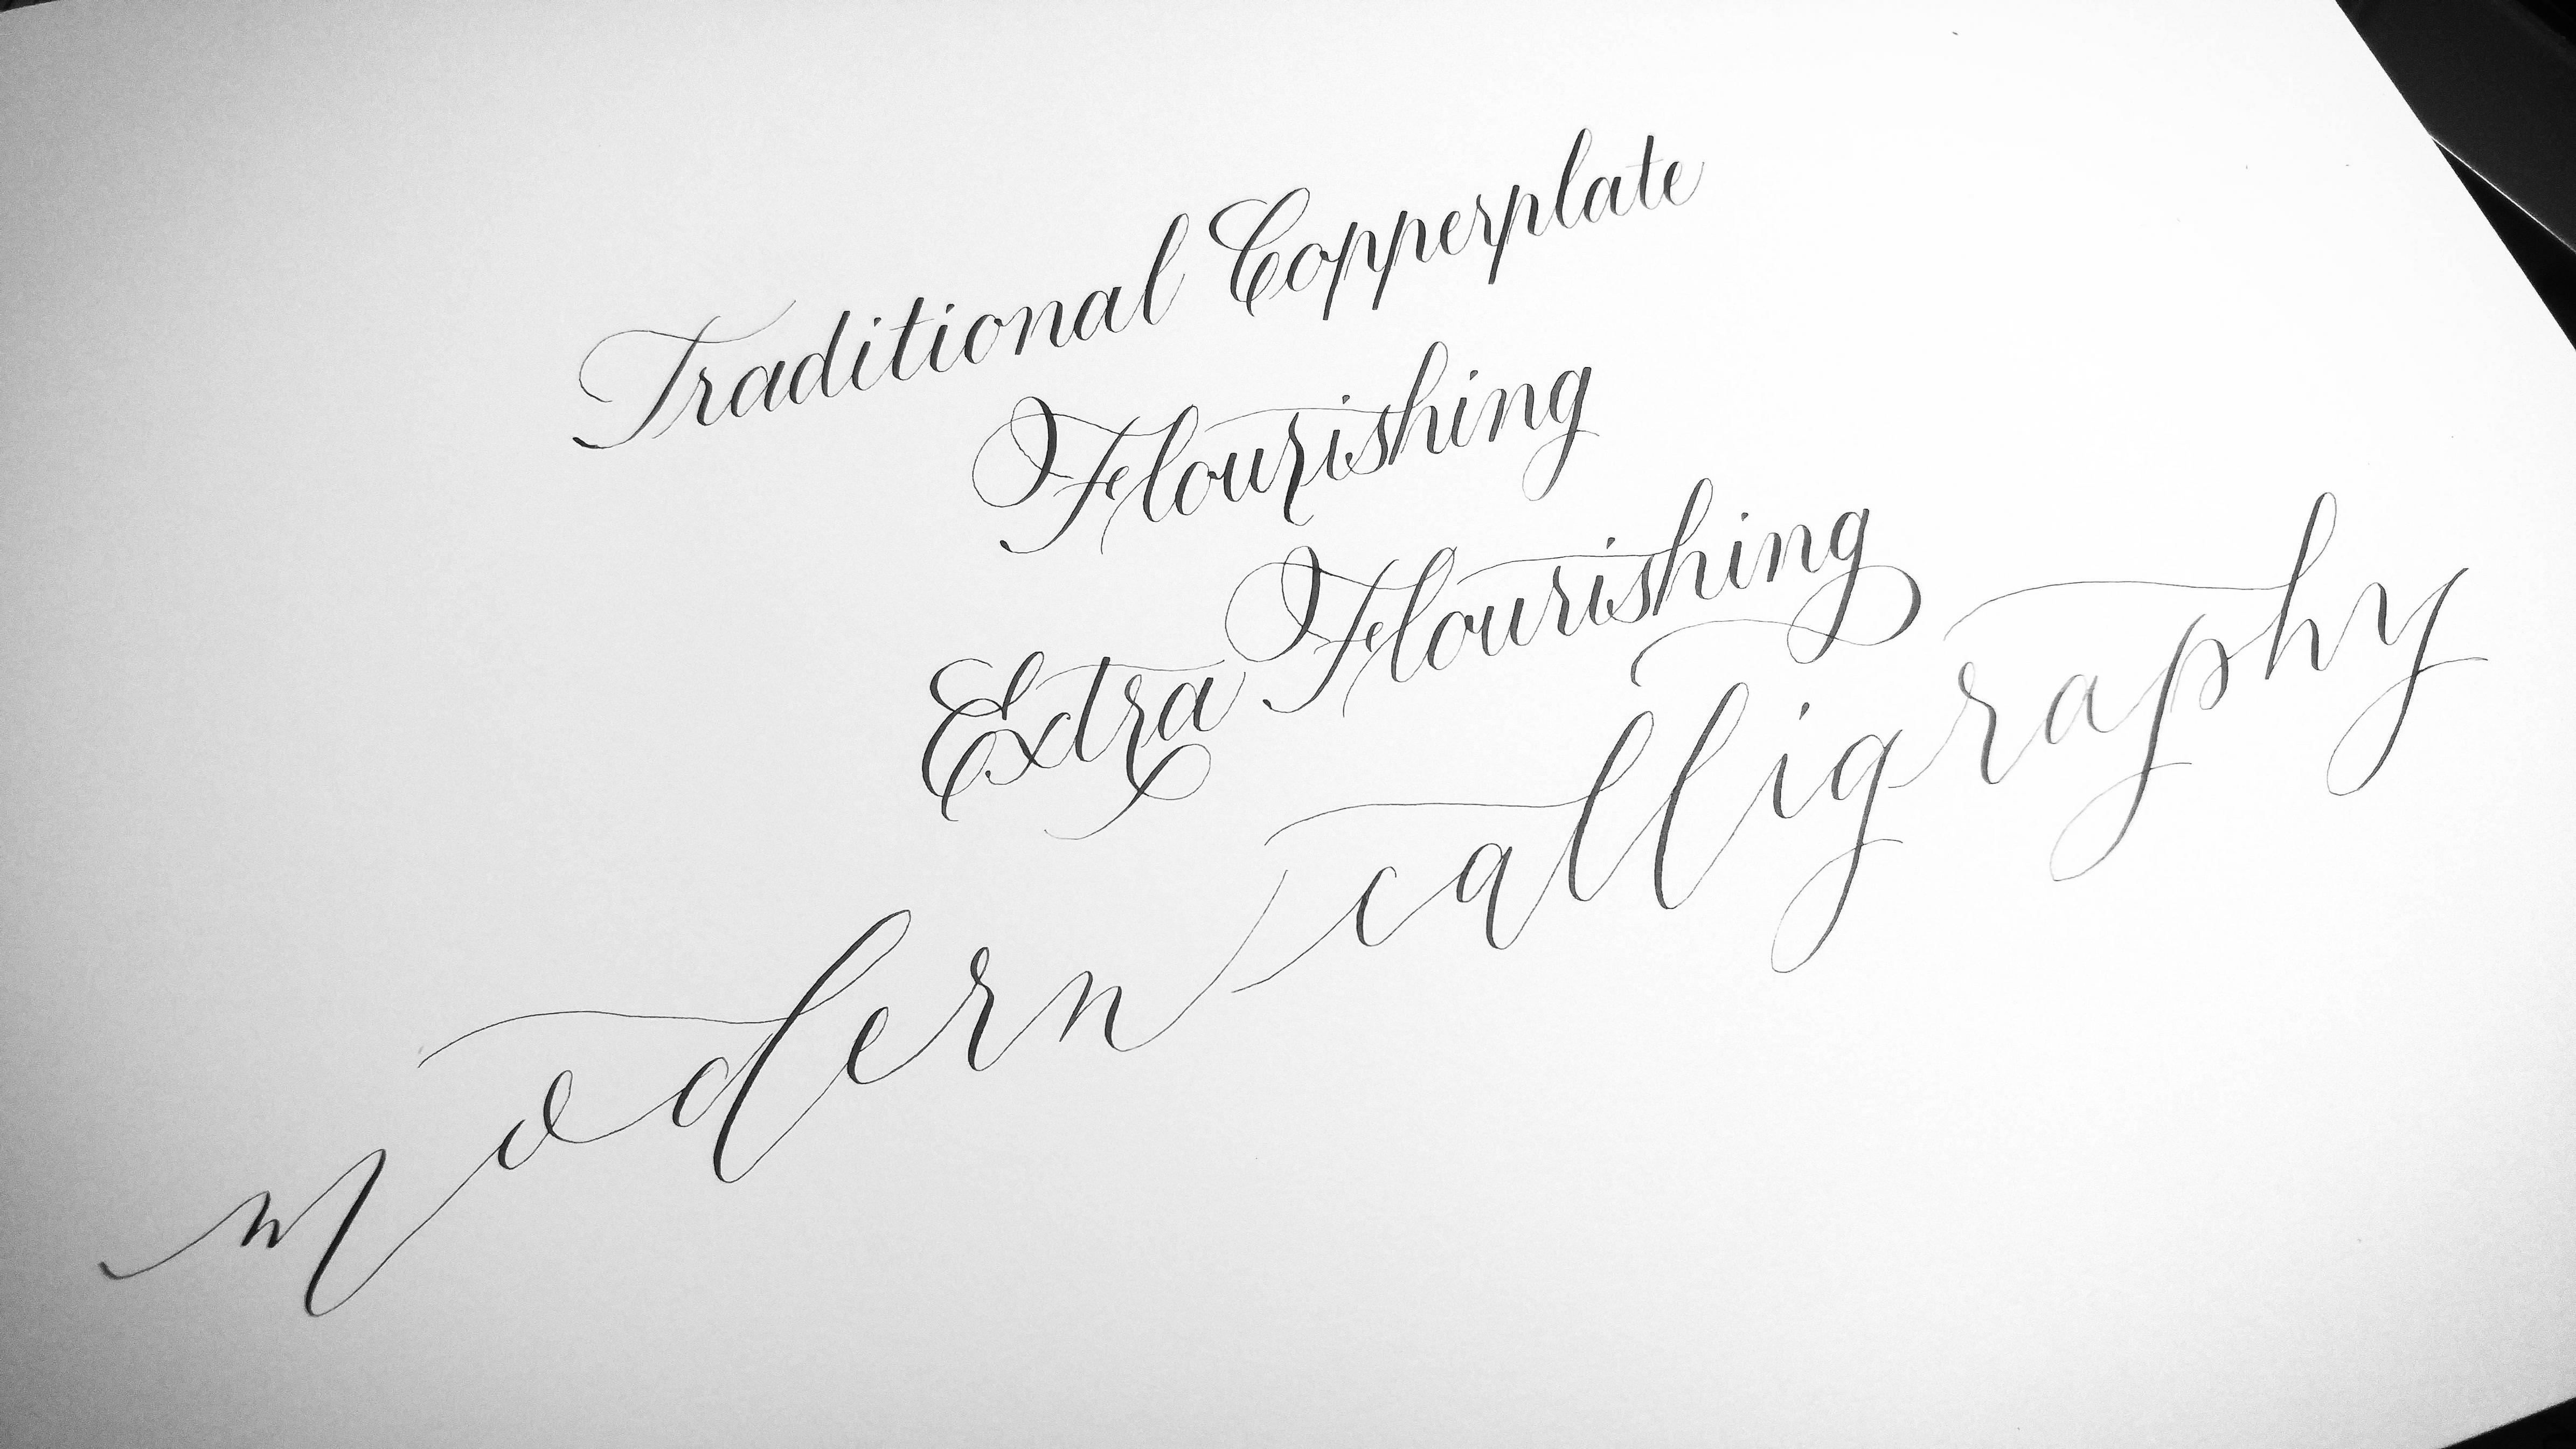 Traditional Copperplate
Flourishing
Extra Flourishing
modern calligraphy